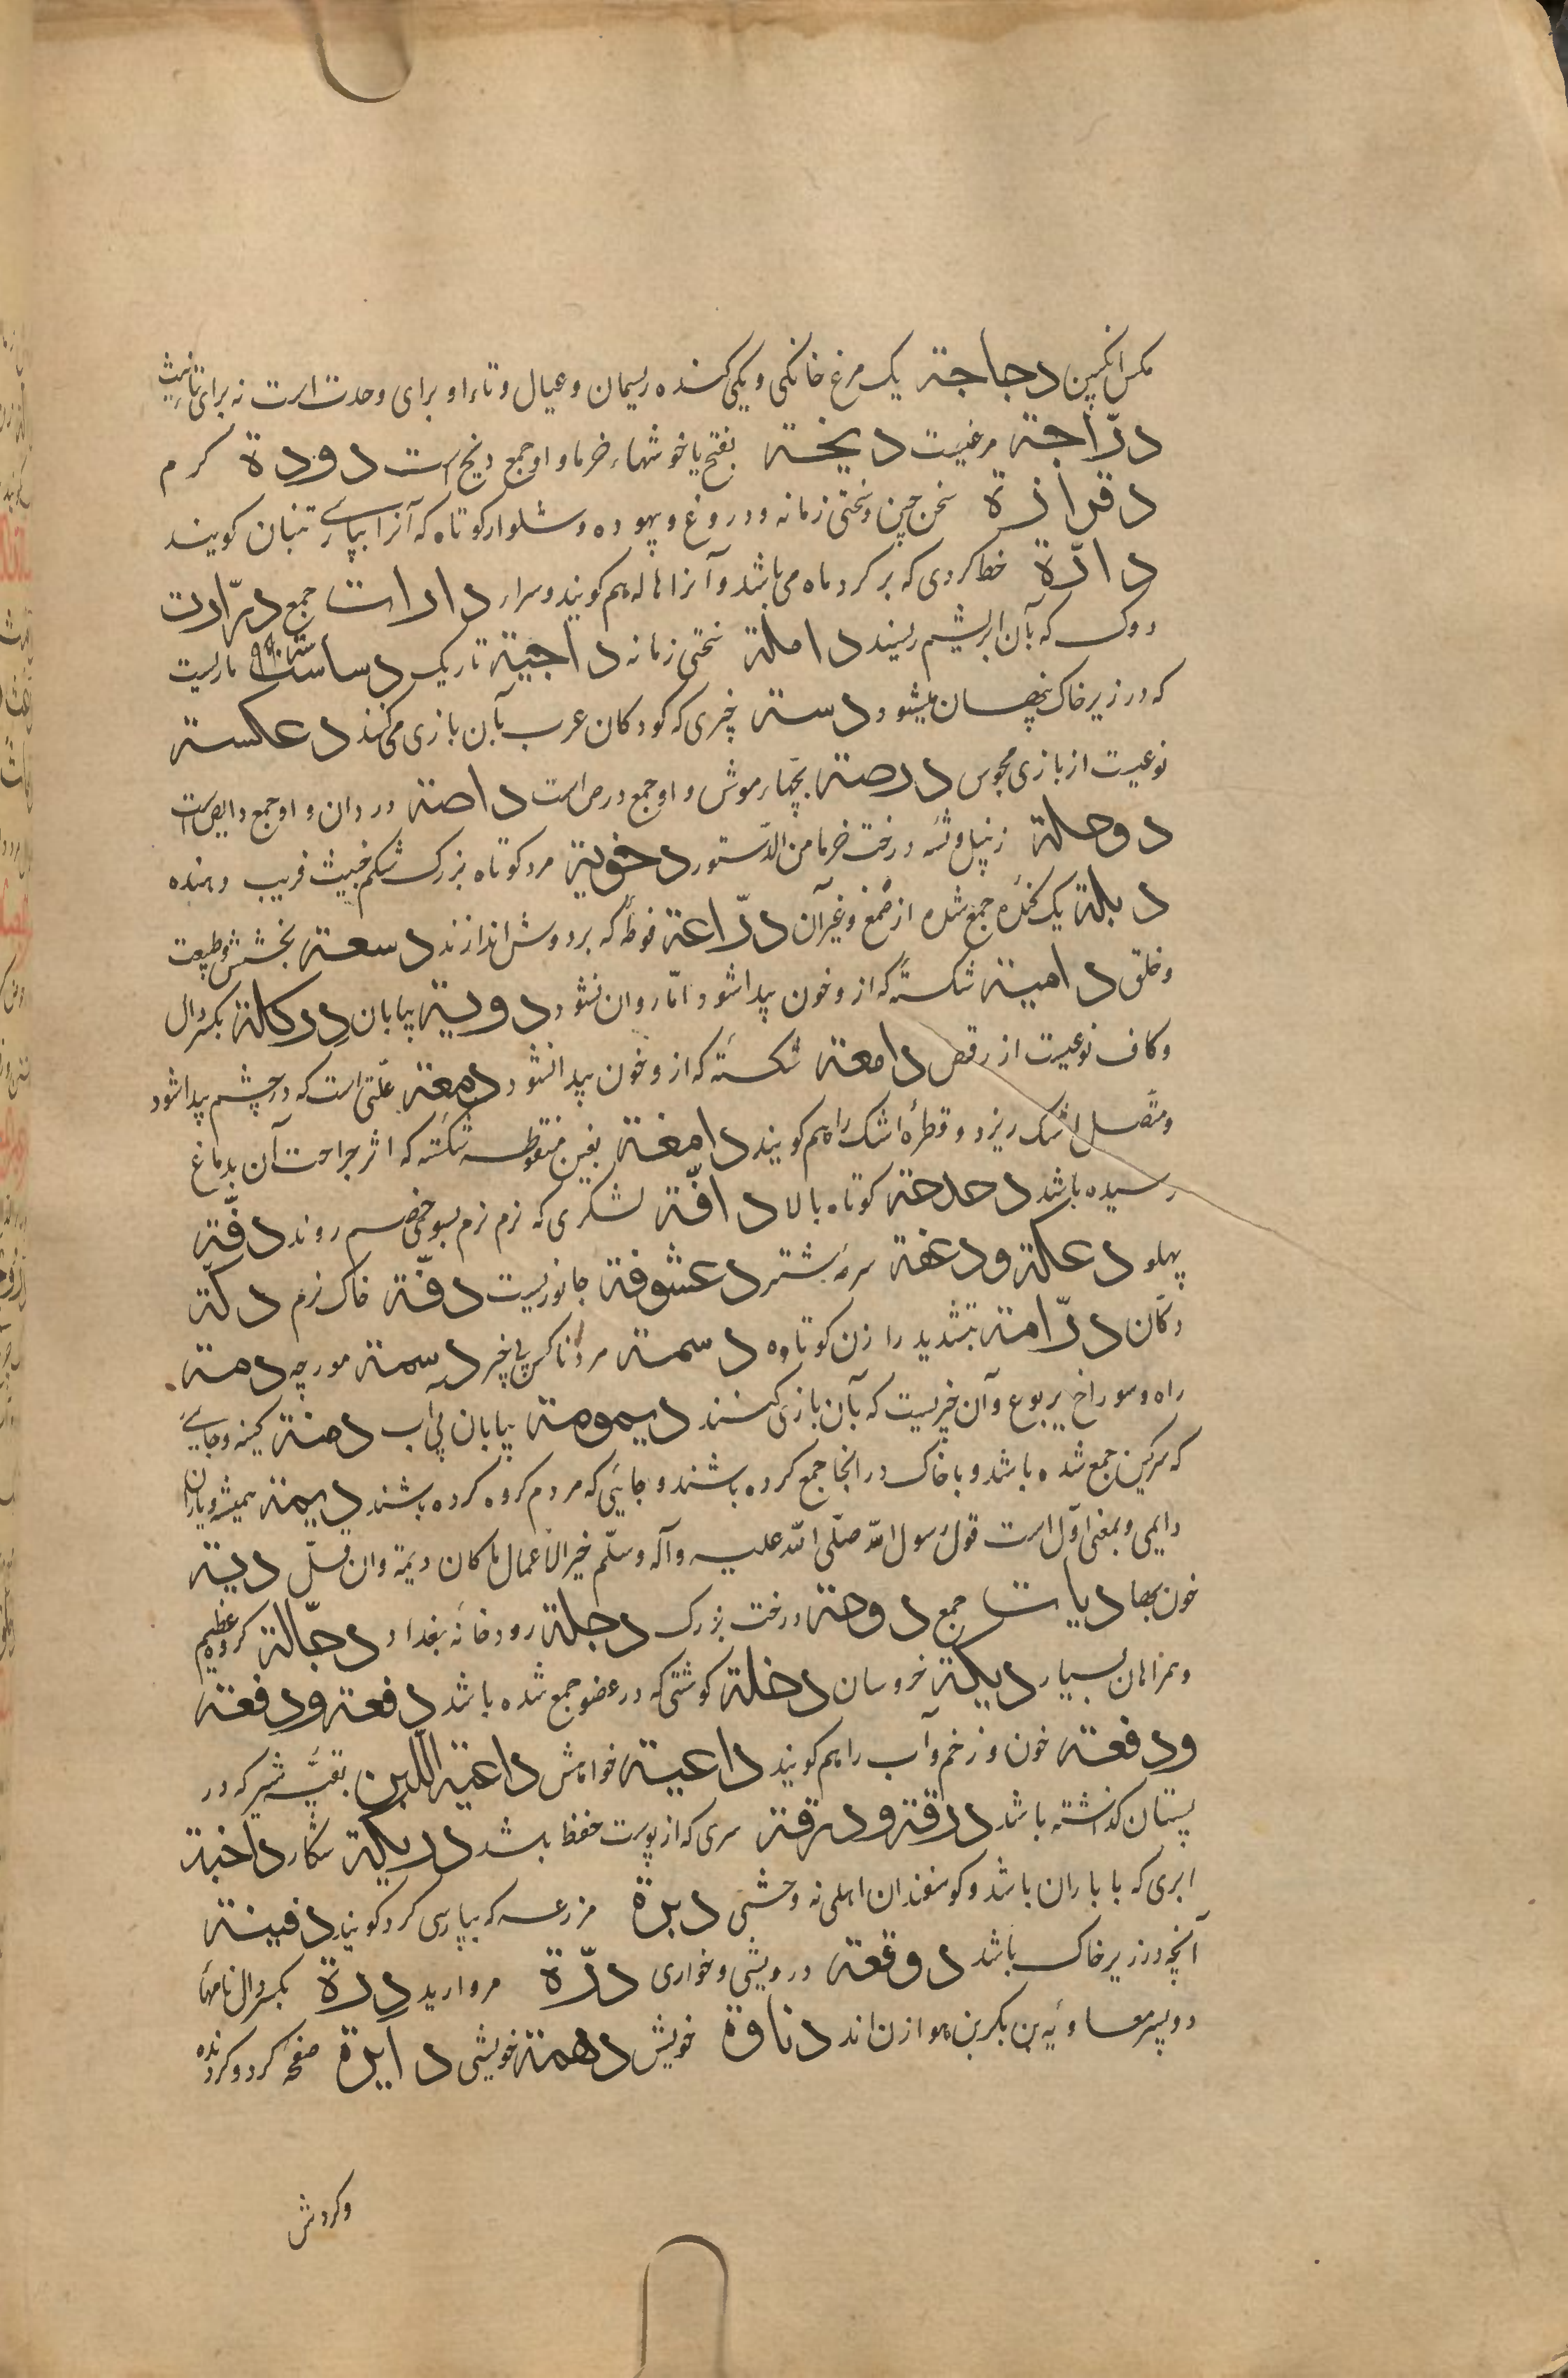 مکس انکبین دجاجة یک مرغ خانکی و یکی کننده ریسمان و عیال و تاء او برای وحدت است نه برای تانیث
درّاجة مرغیست دیخة بفتح یا خوشهاء خرما و او جمع دیخ است دودة کرم
دقرارة سخن چین و سختی زمانه و دروغ و بیهوده و شلوار کوتاه که آنرا بپارسے تنبان کویند
دارّة خط کردی که بر کرد ماه می باشد و آنرا هاله هم کویند و سرار دارات جمع درّارت
دوک که بآن ابریشم ریسند داملة سختی زمانه داجیة تاریک دساسة ماریست
که در زیر خاک پنهان میشود دستة چیزی که کودکان عرب بآن بازی می کنند دعکسة
نوعیست از بازی مجوس درصة بچهاء موش و او جمع درص است داصة دزدان و او جمع دایص است
دوحلة زنبیل و تنهٔ درخت خرما من الدّستور دخونة مرد کوتاه بزرک شکم خبیث فریب دهنده
دبلة یک کنده جمع شده از صمغ و غیر آن درّاعة فوطهٔ که بر دوش اندازند دسعة بخشش و طبیعت
و خلق دامیة شکستهٔ که ازو خون پیدا شود امّا روان نشود دویة بیابان درکلة بکسر دال
و کاف نوعیست از رقص دامعة شکستهٔ که ازو خون پیدا نشود دمعة علّتی است که در چشم پیدا شود
و متّصل اشک ریزد و قطرهٔ اشک را هم کویند دامغة بغین منقوطه شکسته که اثر جراحت آن بدماغ
رسیده باشد دحدحة کوتاه بالا دافّة لشکری که نرم نرم بسوی خصم روند دفّة
پهلو دعکة و دعفة سرهٔ شتر دعشوقة جانوریست دقّة خاک نرم دکّة
دکّان درّامة بتشدید را زن کوتاه دسمة مرد ناکس بی خیر دسمة مورچه دمة
راه و سوراخ یربوع و آن چیزیست که بآن بازی کنند دیمومة بیابان بی آب دمنة کینه و جایے
که سرکین جمع شده باشد و با خاک در انجا جمع کرده باشند و جائیی که مردم کروه کرده باشند دیمة همیشه و باران
دایمی و بمعنی اوّل است قول رسول الله صلّی الله علیه و آله و سلّم خیر الاعمال ما کان دیمة وان قلّ دیة
خون بها دیات جمع دوحة درخت بزرک دجلة رودخانهٔ بغداد دجّالة کروه عظیم
و همراهان بسیار دیکة خروسان دخلة کوشتی که در عضو جمع شده باشد دفعة و دفعة
ودفعة خون و زخم و آب را هم کویند داعیة خواهش داعیة اللبن بقیّهٔ شیر که در
پستان کذاشته باشد درقة و درقة سری که از پوست حفظ باشد دریکة شکار داخنة
ابری که با باران باشد و کوسفندان اهلی نه وحشی دبرة مزرعه که بپارسی کرد کویند دفینة
آنچه در زیر خاک باشد دوقعة درویشی و خواری درّة مروارید درّة بکسر دال نامهاء
دو پسر معاویة بن بکر بن هوازن اند دناوة خویش دهمة خویشی دایرة صفحهٔ کرد و کردنده
و کردش